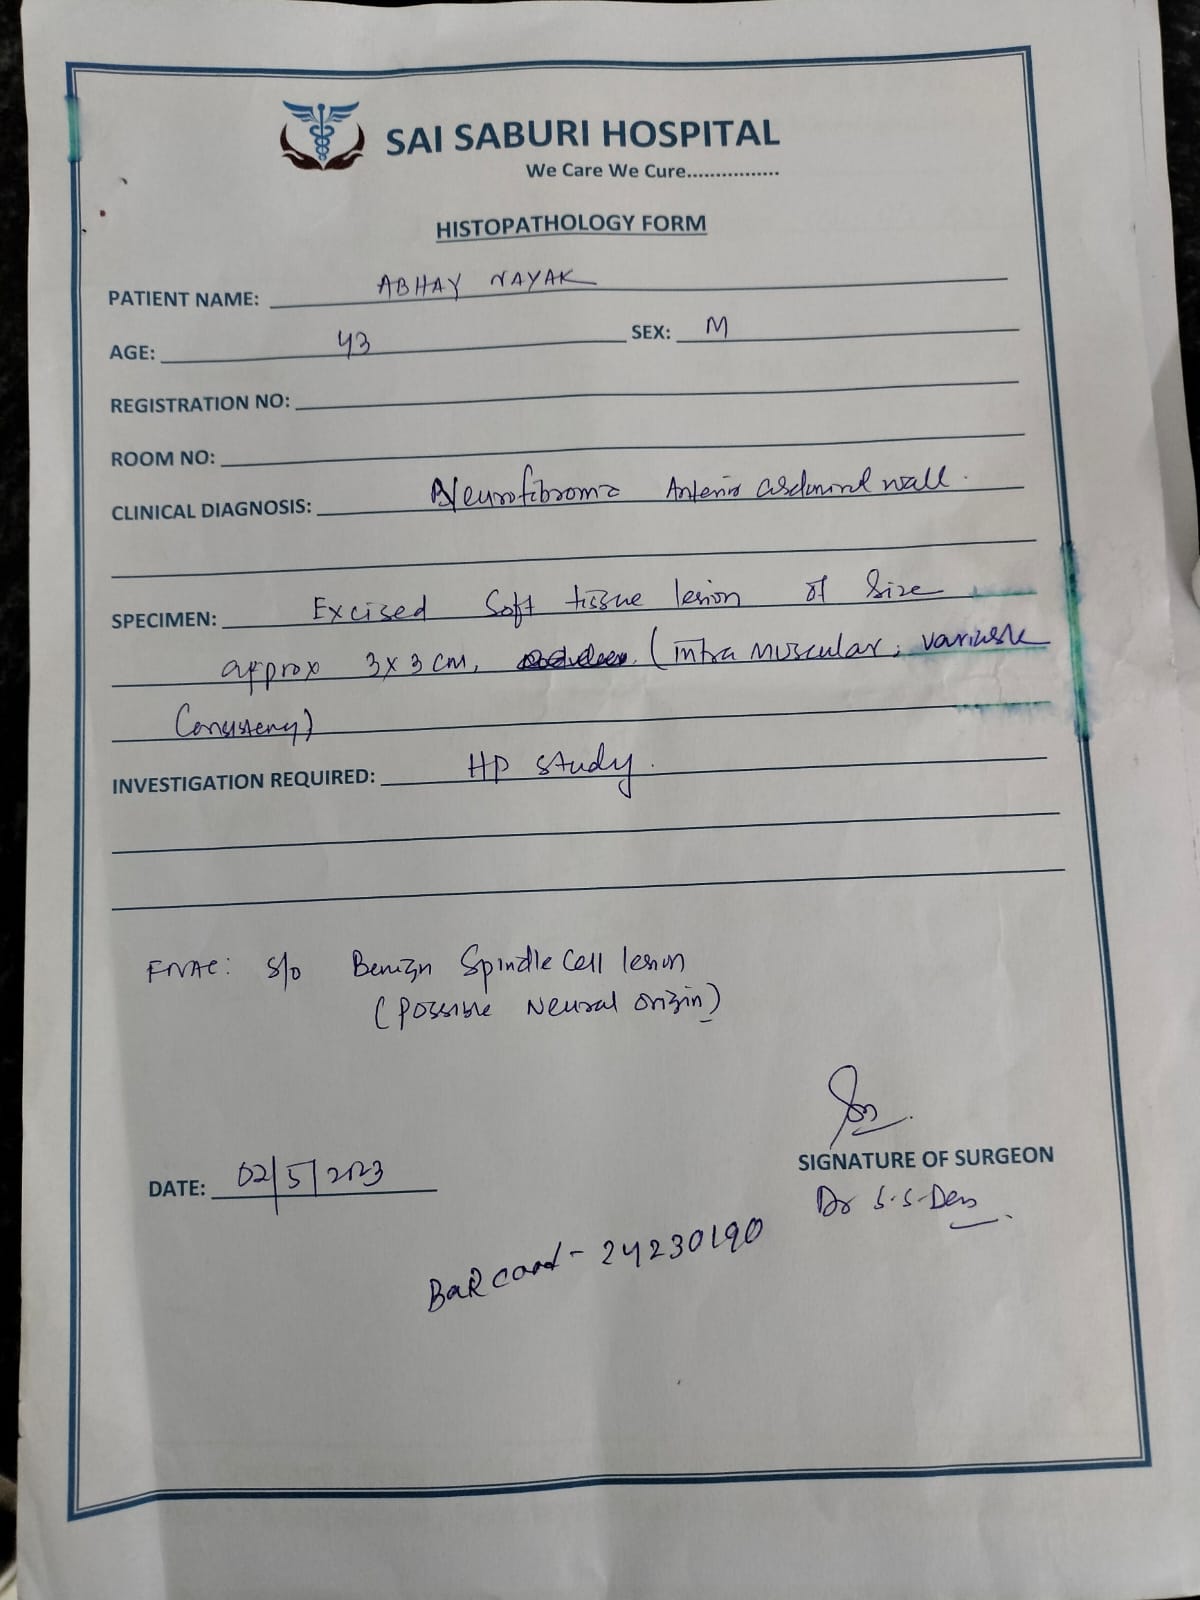 SAI SABURI HOSPITAL
We Care We Cure................
HISTOPATHOLOGY FORM
PATIENT NAME: ABHAY NAYAK
AGE: 43 SEX: M
REGISTRATION NO:
ROOM NO:
CLINICAL DIAGNOSIS: Neurofibroma Anterior abdominal wall.
SPECIMEN: Excised Soft tissue lesion of Size
approx 3x3 cm, (intra muscular, variable
Consistency)
INVESTIGATION REQUIRED: HP study.
FNAC: s/o Benign Spindle Cell lesion
(Possible Neural origin)
SIGNATURE OF SURGEON
DATE: 02/5/2023
Dr S.S. Das
BaR coad - 24230190